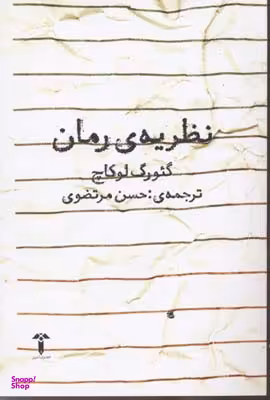 نظریه‌ی رمان
گئورگ لوکاچ
ترجمه‌ی: حسن مرتضوی
Snapp!
Shop